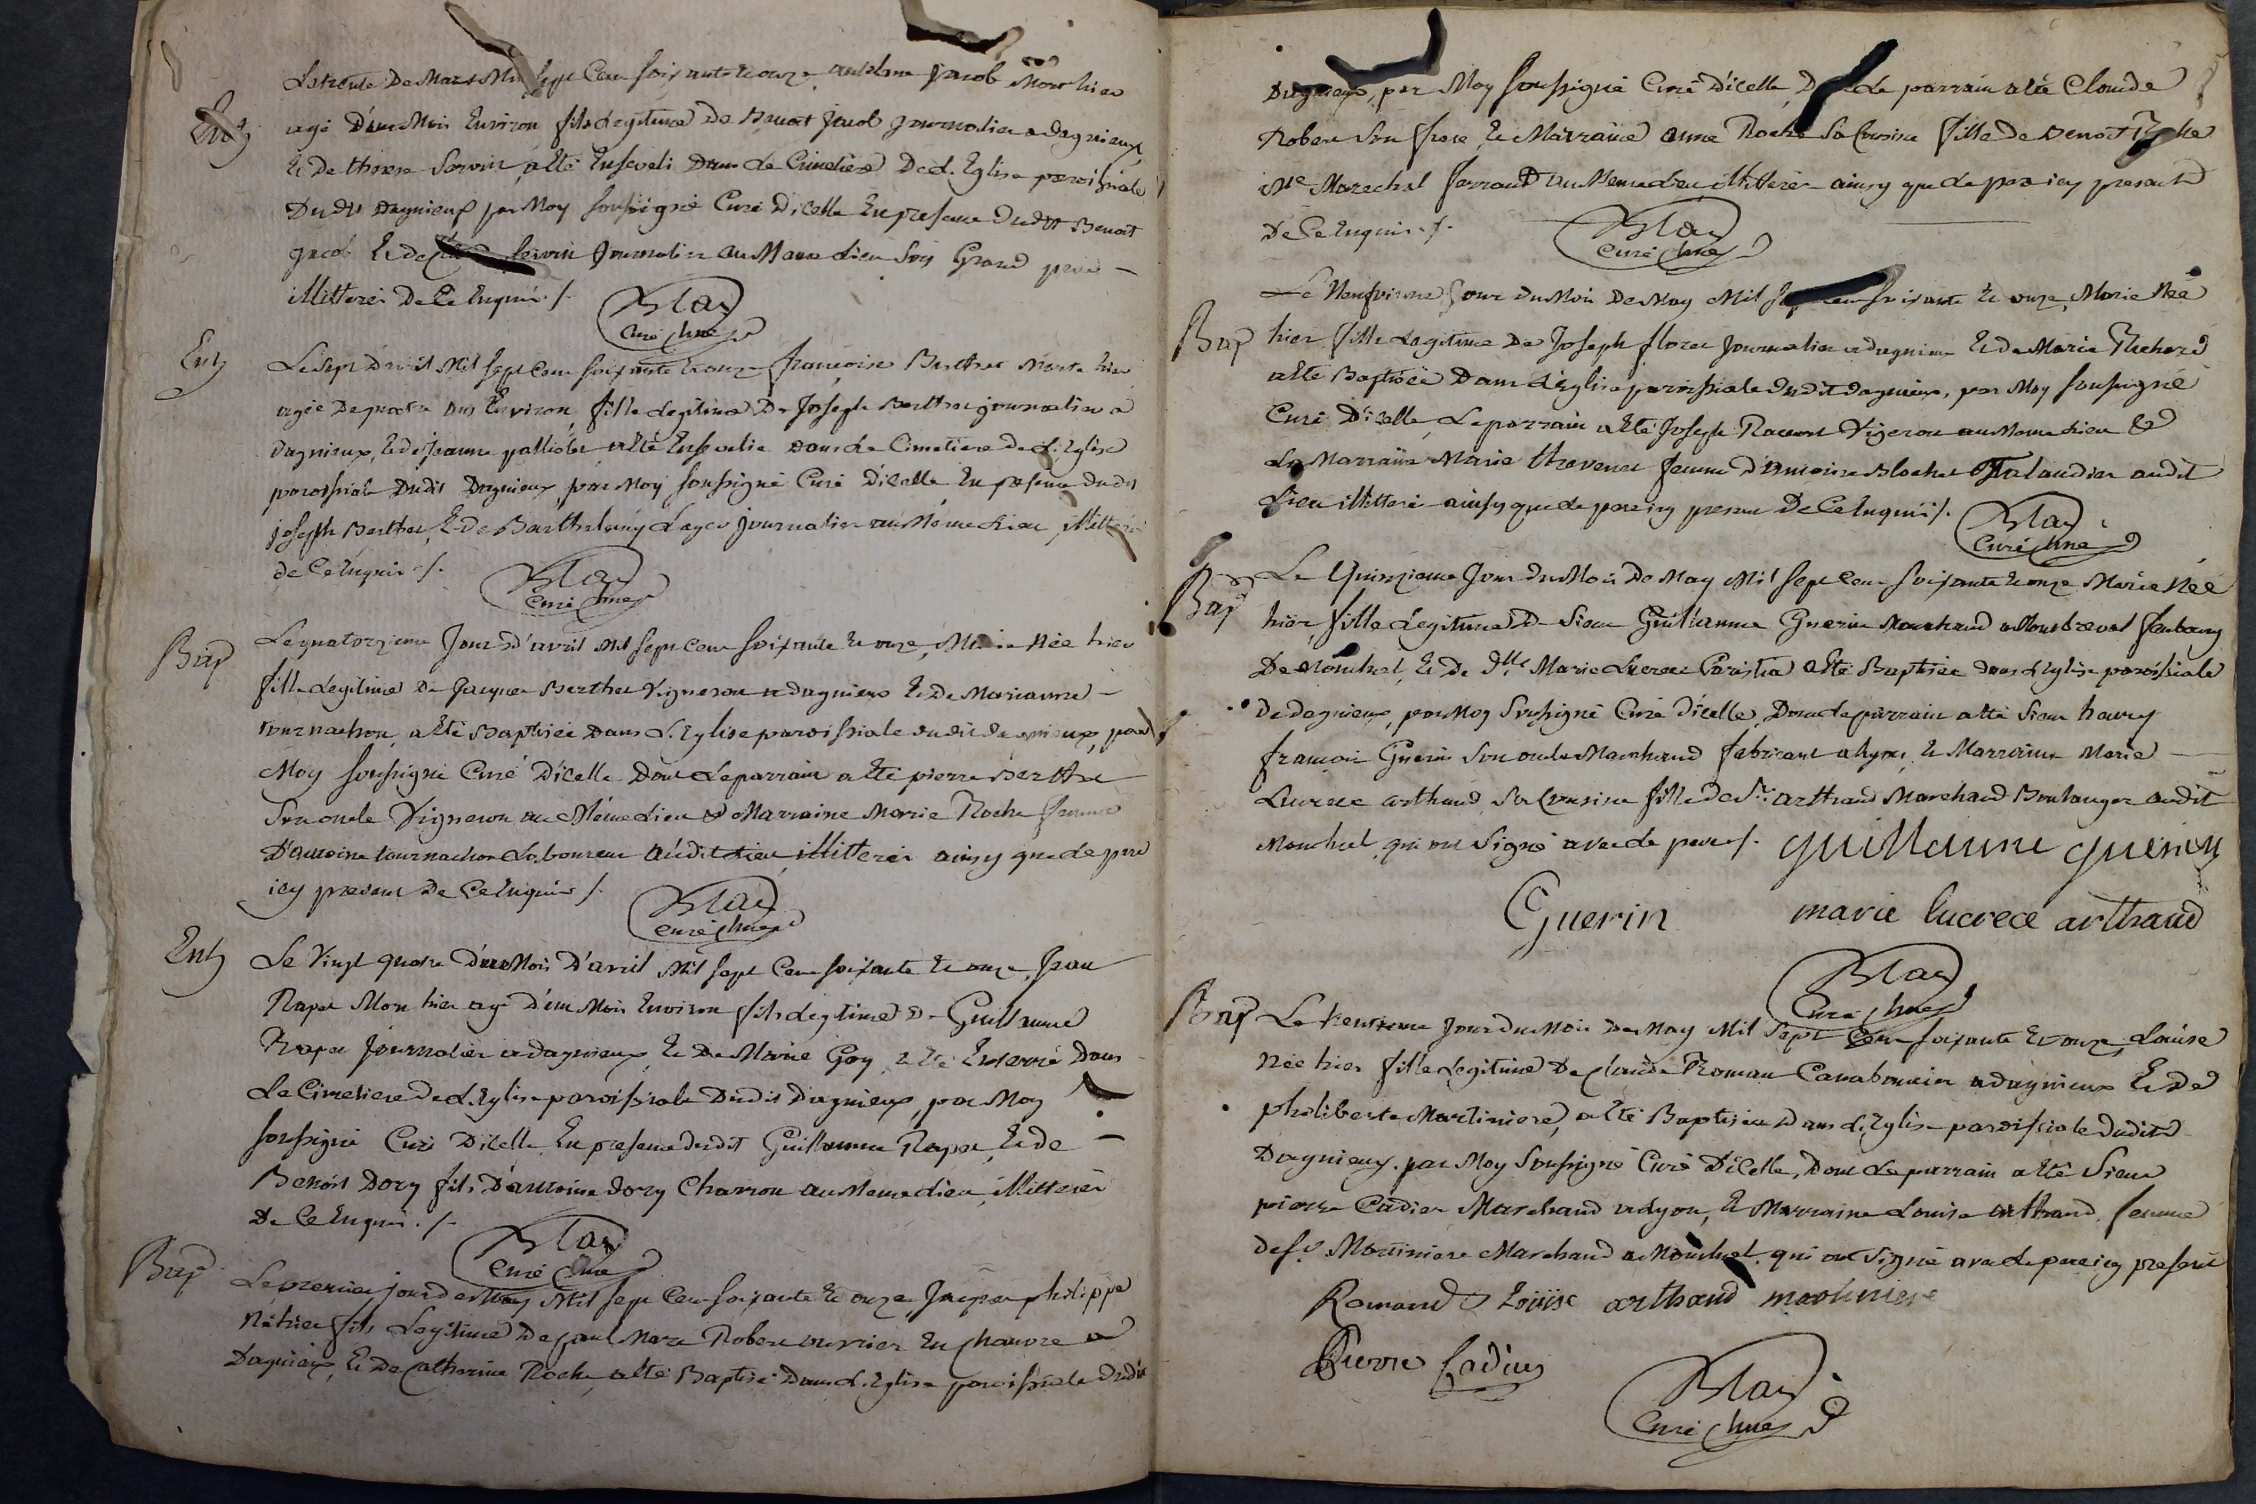 Le trente De Mars Mil sept Cent soixante et onze, anselme Jacob Mort hier
Ent
agé D'un Mois Environ fils Legitime De Benoit Jacob Journalier a dagnieux,
Et De therese Servin, a Eté Enseveli Dans Le Cimetiere De L'Eglise paroissiale
Dudit Dagnieux par Moy soussigné Curé D'icelle En presence Dudit Benoit
Jacob Et de servin Journalier au Meme Lieu Son Grand pere
illitterés De Ce Enquis ./.
Blay
Curé
Ent
Le Sept D'avril Mil sept Cent soixante et onze françoise Berthet Morte hier
agée De quatre ans Environ, fille Legitime De Joseph Berthet journalier a
Dagnieux, Et de jeanne a Eté Ensevelie Dans Le Cimetiere De L'Eglise
paroissiale Dudit Dagnieux, par Moy soussigné Curé D'icelle En presence dudit
joseph Berthet, Et De Barthelemy journalier au Même Lieu, illitterés
de Ce Enquis ./.
Blay
Curé
Bap
Le quatorzieme Jour D'avril Mil sept Cent soixante et onze, Marie Née hier
fille Legitime De Jacques Berthet Vigneron a dagnieux Et De Marianne
tournachon, a Eté Baptisée Dans L'Eglise paroissiale dudit dagnieux, par
Moy soussigné Curé D'icelle Dont Le parrain a Eté pierre Berthet
Son oncle Vigneron au Même Lieu & Marraine Marie Roche femme
D'antoine tournachon Laboureur audit Lieu, illitterés ainsy que Le pere
icy present De Ce Enquis ./.
Blay
Curé
Ent
Le Vingt quatre Du Mois D'avril Mil sept Cent soixante et onze, Jean
Rapet Mort hier agé D'un Mois Environ fils Legitime De Guillaume
Rapet Journalier a dagnieux, Et De Marie Goy, a Eté Enterré Dans
Le Cimetiere De L'Eglise paroissiale Dudit Dagnieux, par Moy
soussigné Curé D'icelle En presence dudit Guillaume Rapet, Et de
Benoit Dory fils D'antoine dory Charron au Meme Lieu, illitterés
De Ce Enquis ./.
Blay
Curé
Bap
Le premier jour de May Mil sept Cent soixante et onze, Jacques philippe
Né hier fils Legitime De Marc Robert ouvrier En chanvre a
Dagnieux, Et De Catherine Roche, a Eté Baptisé Dans L'Eglise paroissiale dudit
Dagnieux, par Moy soussigné Curé D'icelle, Le parrain a Eté Claude
Robert Son frere, Et Marraine anne Roche Sa Cousine fille De Benoit Roche
Me Marechal ferrand au Meme Lieu illitterés ainsy que Le pere icy present
De Ce Enquis ./.
Blay
Curé
Bap
Le Neufvieme Jour du Mois De May Mil sept Cent soixante et onze, Marie Née
hier fille Legitime De Joseph floret Journalier a dagnieux Et de Marie Richard
a Eté Baptisée Dans L'Eglise paroissiale dudit dagnieux, par Moy soussigné
Curé D'icelle, Le parrain a Eté Joseph Vigneron au Meme Lieu &
La Marraine Marie thevenet femme d'antoine Blochet audit
Lieu illitterés ainsy que Le pere icy present De Ce Enquis ./.
Blay
Curé
Bap
Le Quinzieme Jour du Mois De May Mil sept Cent soixante et onze Marie Née
hier, fille Legitime De Sieur Guillaume Guerin Marchand a faubourg
De Montluel, Et De Dlle Marie Lucrece a Eté Baptisée dans L'Eglise paroissiale
De dagnieux, par Moy soussigné Curé D'icelle, Dont Le parrain a Eté Sieur
françois Guerin Son oncle Marchand fabricant a Lyon, Et Marraine Marie
Lucrece arthaud Sa Cousine fille de Sr. arthaud Marchand Boulanger audit
Montluel, qui ont Signé avec Le pere ./. guillaume guerin
Guerin marie lucrece arthaud
Blay
Curé
Bap
Le trentieme Jour du Mois De May Mil Sept Cent soixante et onze, Louise
Née hier fille Legitime De Claude Romans a dagnieux Et De
philiberte Martiniere, a Eté Baptisée Dans L'Eglise paroissiale dudit
Dagnieux par Moy Soussigné Curé D'icelle, Dont Le parrain a Eté Sieur
pierre Cadier Marchand a Lyon, Et Marraine Louise arthaud, femme
de Sr. Martiniere Marchand a Montluel, qui ont Signé avec Le pere icy present
Romand Loüise arthaud martiniere
Pierre Cadier
Blay
Curé